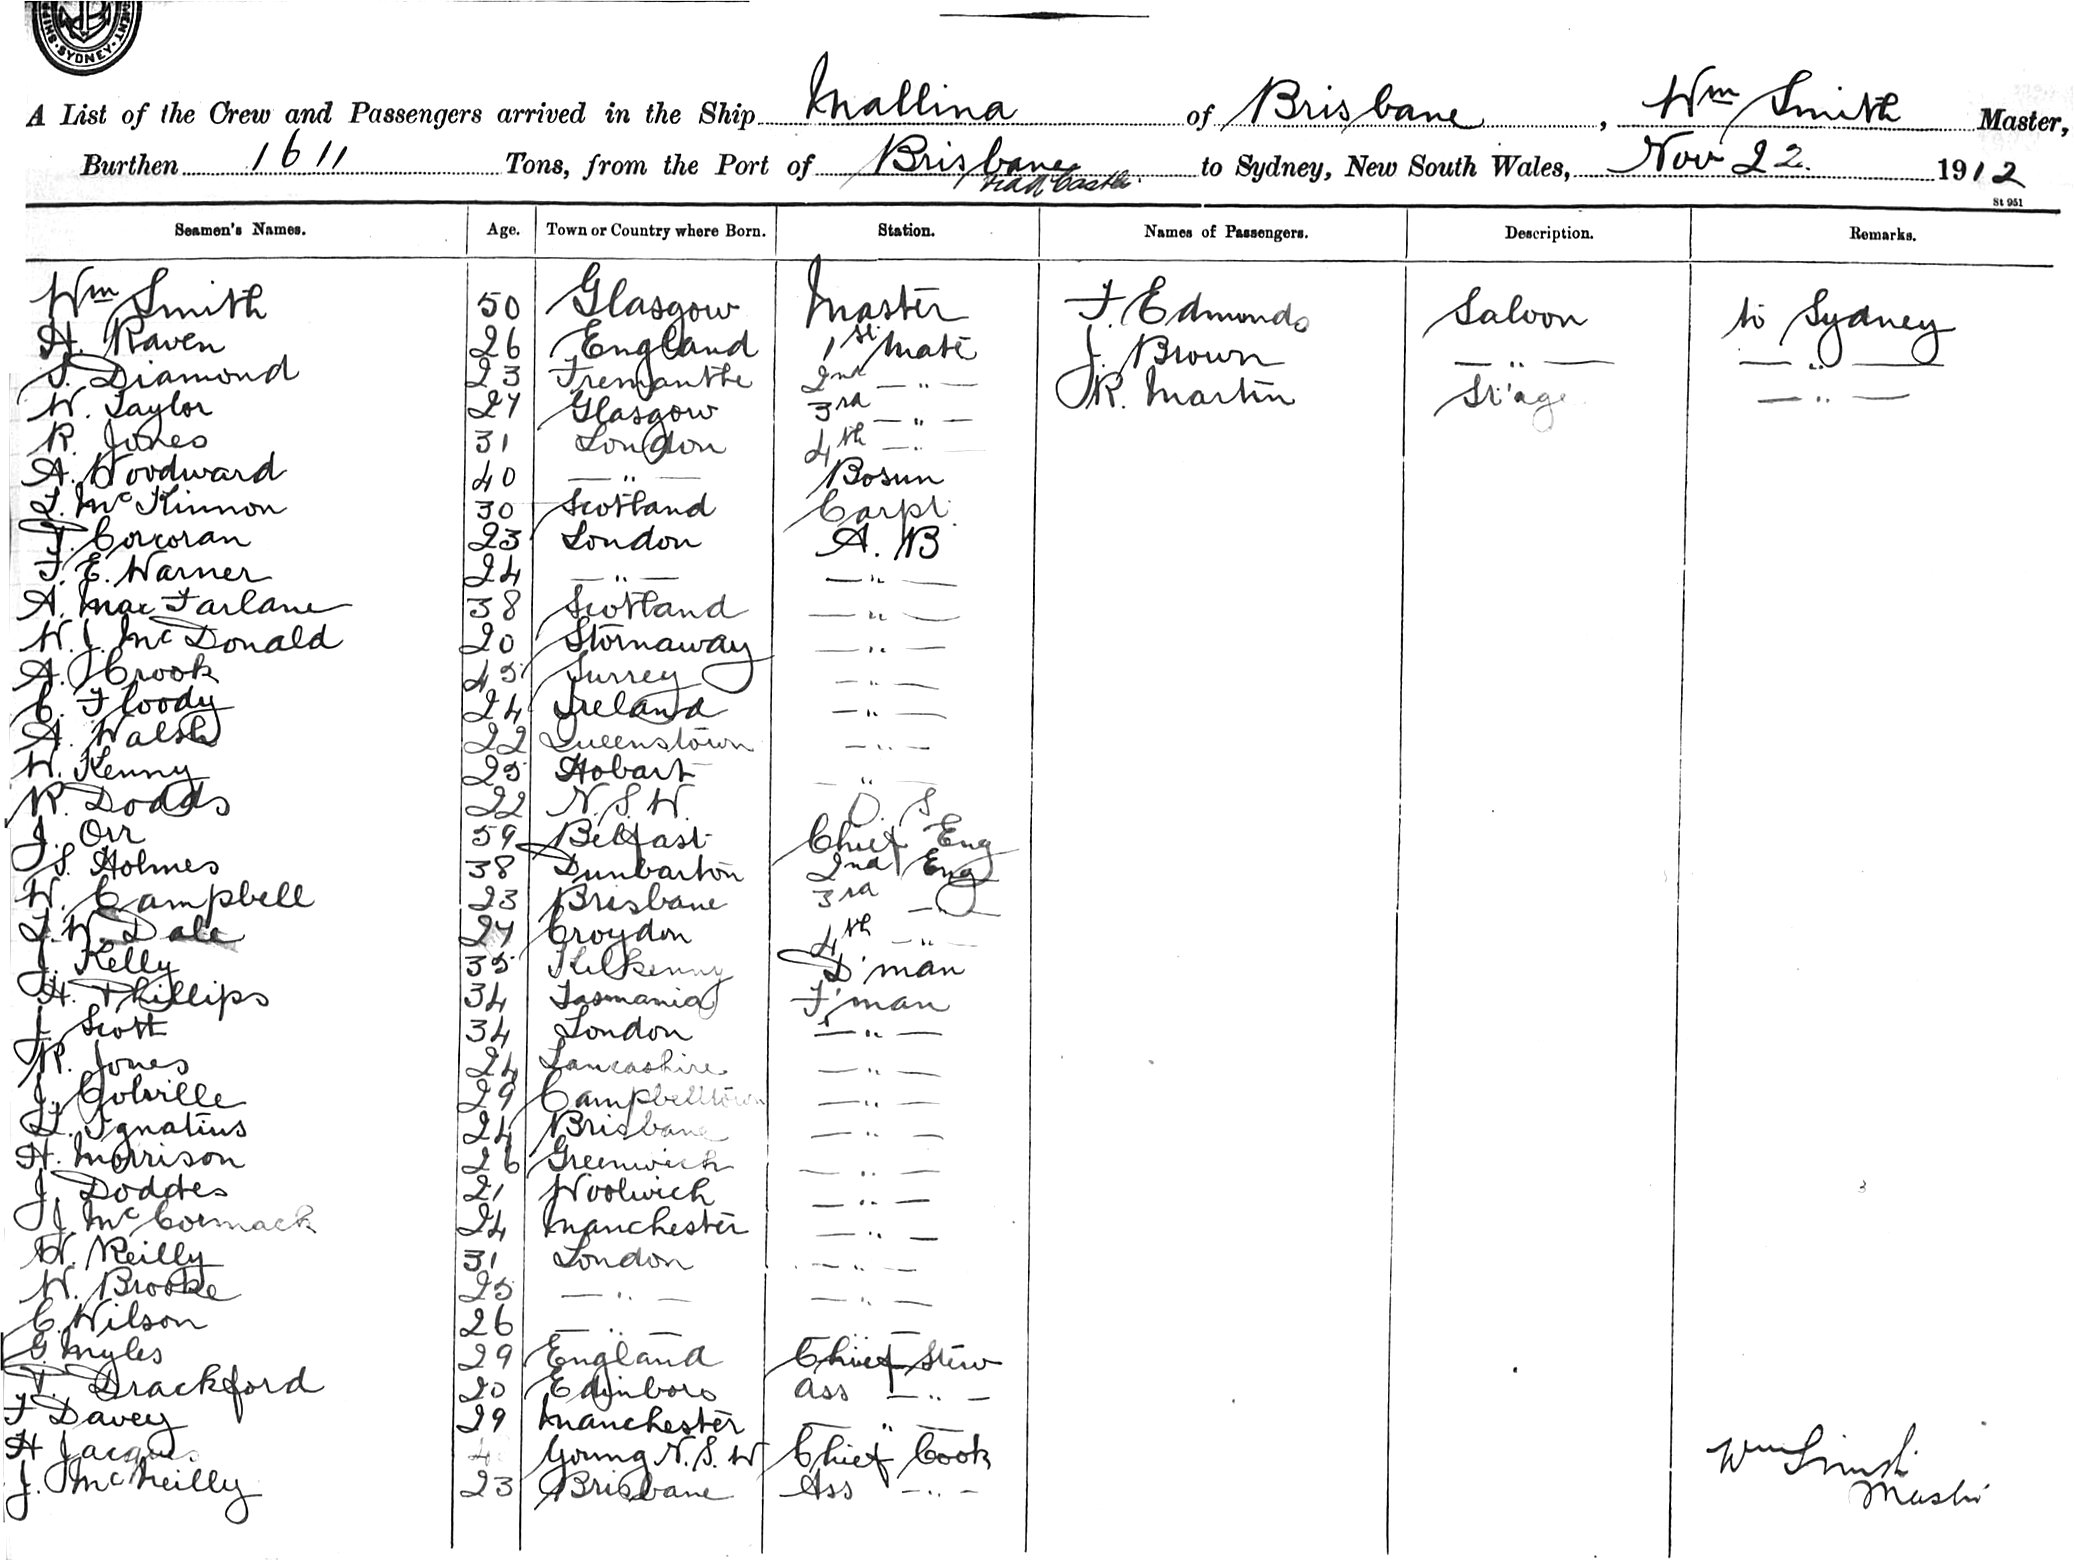 SYDNEY
A List of the Crew and Passengers arrived in the Ship Mallina of Brisbane, Wm Smith Master,
Burthen 1611 Tons, from the Port of Brisbane to Sydney, New South Wales, Nov 22 1912
St 951
Seamen's Names. Age. Town or Country where Born. Station. Names of Passengers. Description. Remarks.
Wm Smith 50 Glasgow Master F. Edmonds Saloon to Sydney
H. Raven 26 England 1st Mate J. Brown — " — — " —
T. Diamond 23 Fremantle 2nd — " — R. Martin St'age — " —
W. Taylor 27 Glasgow 3rd — " —
R. Jones 31 London 4th — " —
A. Woodward 40 — " — Bosun
T. McKinnon 30 Scotland Carpt.
T. Corcoran 23 London A. B
F. E. Warner 24 — " — — " —
A. MacFarlane 38 Scotland — " —
W. J. McDonald 20 Stornaway — " —
A. Crook 45 Surrey — " —
C. Floody 24 Ireland — " —
A. Walsh 22 Queenstown — " —
W. Kenny 25 Hobart — " —
R. Dodds 22 N. S. W. O. S
J. Orr 59 Belfast Chief Eng
S. Holmes 38 Dunbarton 2nd Eng
W. Campbell 23 Brisbane 3rd — " —
T. W. Dale 27 Croydon 4th — " —
J. Kelly 35 Kilkenny D'man
H. Phillips 34 Tasmania F'man
J. Scott 34 London — " —
R. Jones 24 Lancashire — " —
J. Colville 29 Campbelltown — " —
L. Ignatius 24 Brisbane — " —
H. Morrison 26 Greenwich — " —
J. Doddes 21 Woolwich — " —
J. McCormack 24 Manchester — " —
W. Reilly 31 London — " —
W. Brooke 25 — " — — " —
C. Wilson 26 — " — — " —
G. Myles 29 England Chief Stew
T. Drackford 20 Edinboro Ass — " —
F Davey 29 Manchester — " —
H Jacques Young N. S. W Chief Cook
J. McNeilly 23 Brisbane Ass — " —
Wm Smith
Master